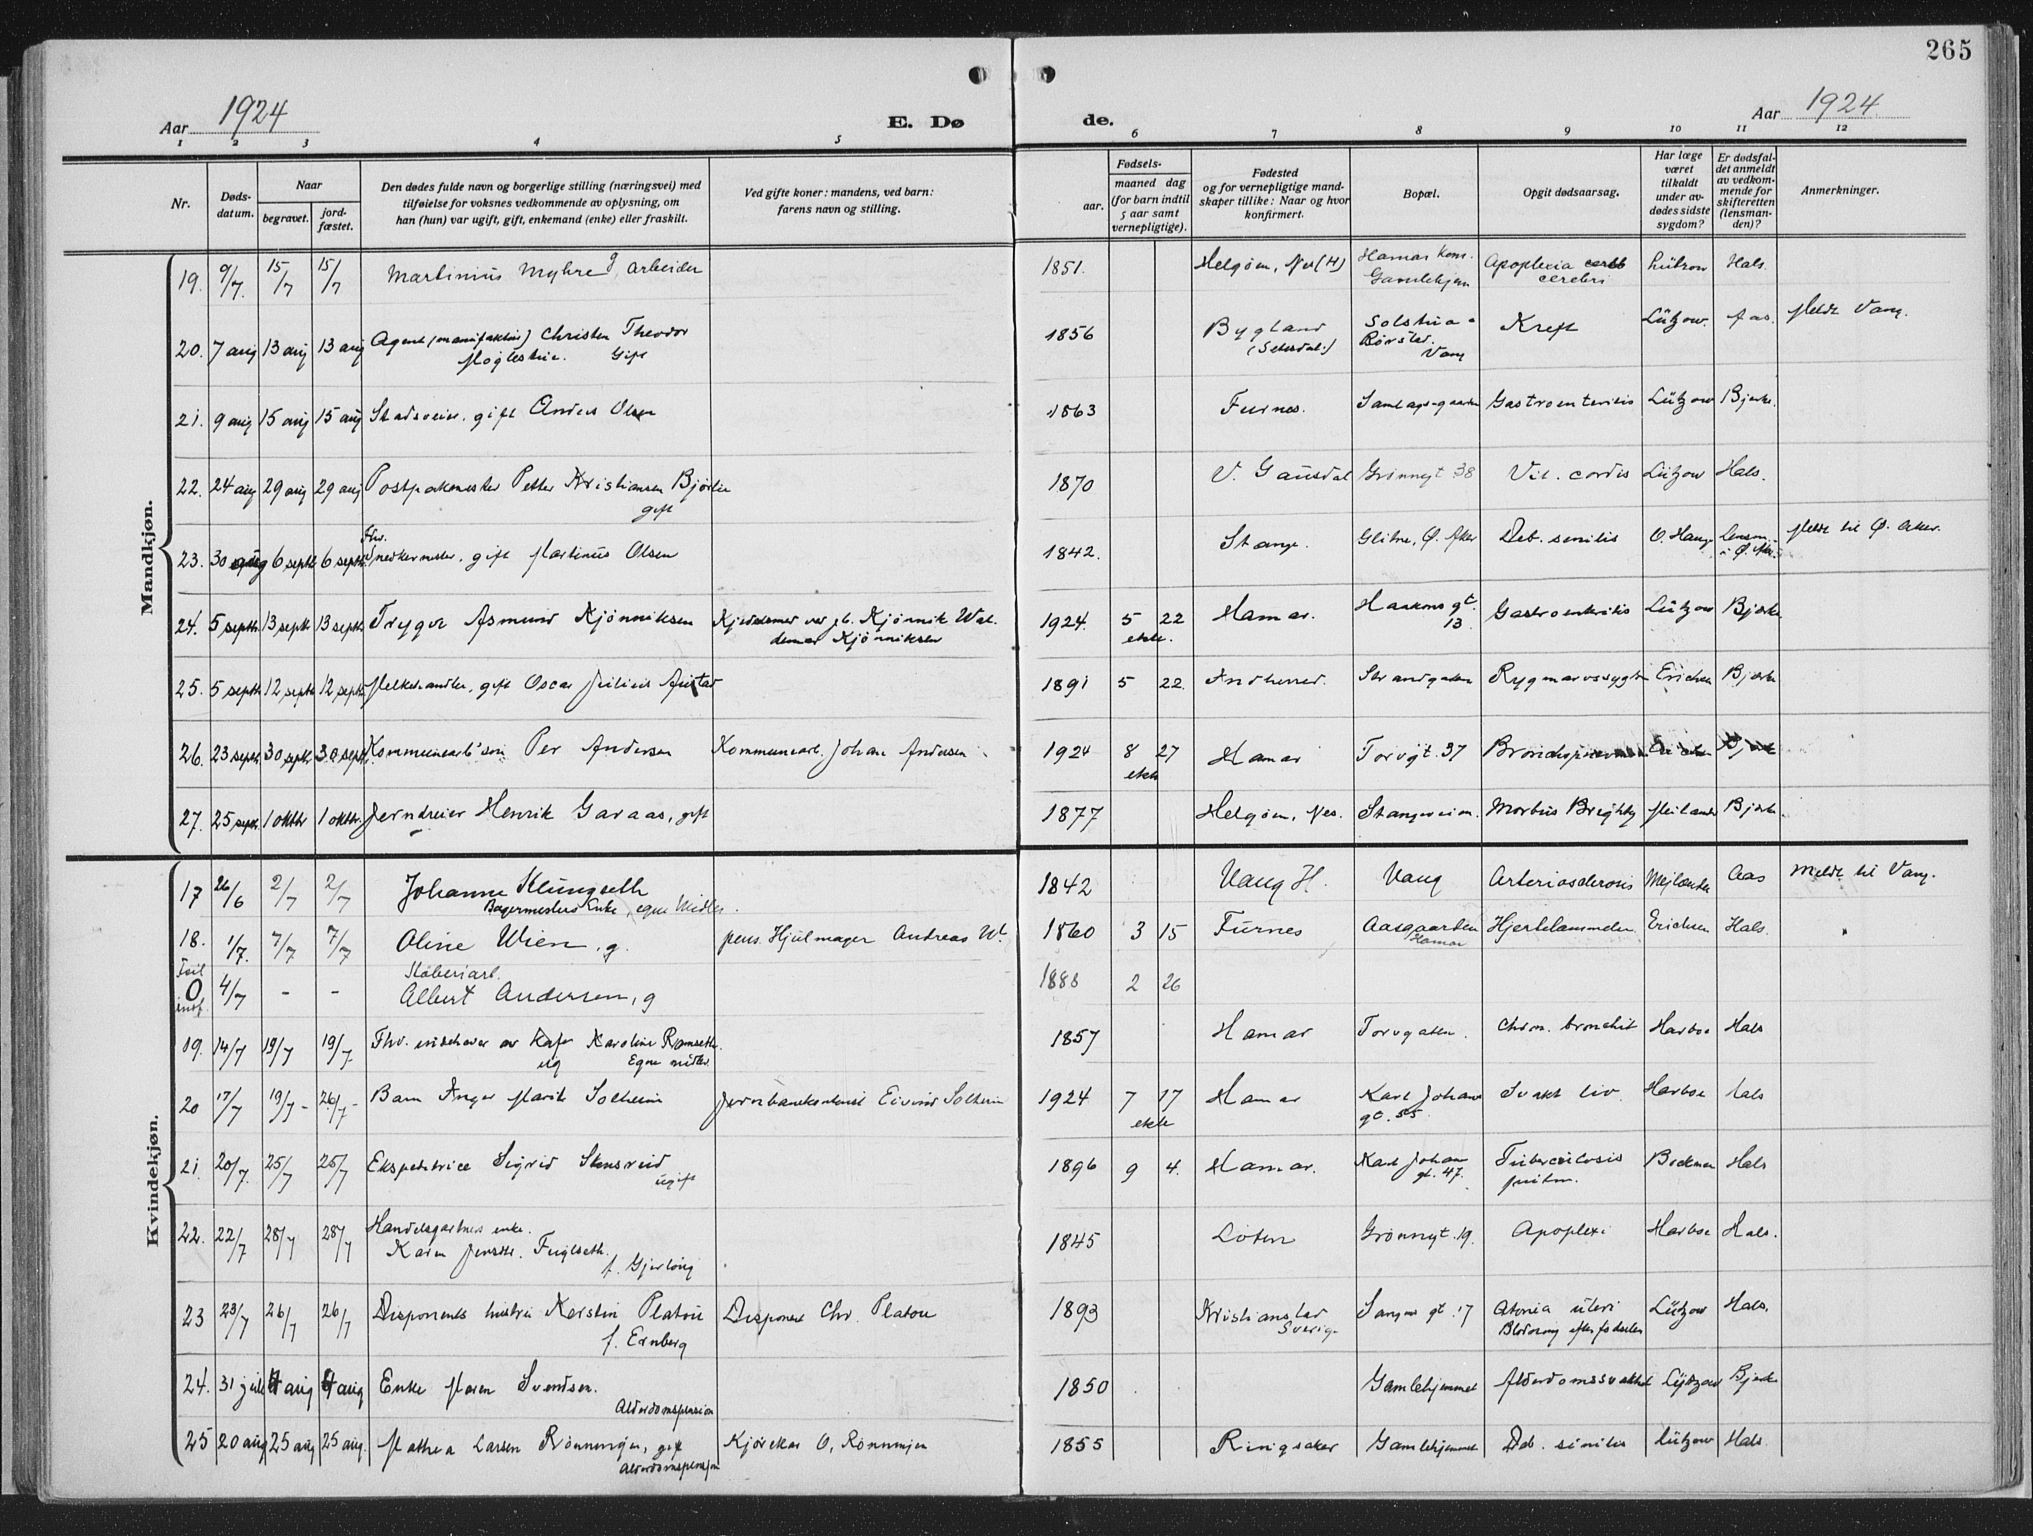 265
Aar 1924
E. Dø
de.
Aar 1924.
1 2 3 4 5 6 7 8 9 10 11 12
Nr.
Døds-
datum.
Naar
begravet.
jord-
fæstet.
Den dødes fulde navn og borgerlige stilling (næringsvei) med
tilføielse for voksnes vedkommende av oplysning, om
han (hun) var ugift, gift, enkemand (enke) eller fraskilt.
Ved gifte koner: mandens, ved barn:
farens navn og stilling.
Fødsels-
aar.
maaned dag
(for barn indtil
5 aar samt
vernepligtige).
Fødested
og for vernepligtige mand-
skaper tillike: Naar og hvor
konfirmert.
Bopæl.
Opgit dødsaarsag.
Har læge
været
tilkaldt
under av-
dødes sidste
sygdom?
Er dødsfal-
det anmeldt
av vedkom-
mende for
skifteretten
(lensman-
den)?
Anmerkninger.
Mandkjøn.
19. 9/7. 15/7 15/7 Martinius Myhre g, arbeider 1851. Helgøen, Nes (H) Hamar kom. Gamlehjem Apoplexia cerebri Lützow Hals.
20. 7 aug 13 aug 13 aug Agent (manufaktur) Christen Theodor
Gift 1856 Bygland (Setesdal.) Rørstad. Vang Kreft Lützow. Aas. Meldt Vang.
21. 9 aug 15 aug 15 aug gift Anders Olsen 1863 Furnes. Gastroenteritis Lützow Bjerke.
22. 24 aug 29 aug 29 aug Petter Kristiansen
gift 1870 V. Gausdal Grønnegt 38 Vit. cordis Lützow Hals.
23. 30 aug 6 septb 6 septb. Fhv. Snedkermester, gift Martinus Olsen 1842. Stange. Ø. Aker Deb. senilis lensm. i Ø. Aker. Meldt til Ø. Aker.
24. 5 septb 13 septb 13 septb Trygve Asmund Kjønniksen Kjønnik Wal-
demar Kjønniksen 1924. 5 22 ekte. Hamar. Haakons gt. 13. Gastroenteritis Lützow Bjerke
25. 5 septb 12 septb 12 septb Melkehandler, gift Oscar Julius 1891 5 22. Strandgaten Erichsen Bjerke
26. 23 septb 30 septb 30 septb Kommunearb' søn Per Andersen Kommunearb. Johan Andersen 1924 8 27 ekte Hamar Torvgt. 37 Erichsen Bjerke
27. 25 septb 1 oktbr 1 oktbr. Jerndreier Henrik Garaas, gift 1877 Helgøen, Nes. Stangeveien. Morbus Brightij Meilænder Bjerke.
Kvindekjøn.
17 26/6 2/7 2/7 Johanne Klungseth
Bagermesters Enke, egne Midler. 1842 Vang H. Vang Arteriosclerosis Mejlænder Aas Meldt til Vang.
18. 1/7. 7/7 7/7 Oline Wien, g. pens. Hjulmager Andreas W. 1860 3 15 Furnes Aasgaarden Hamar Hjertelammelse Erichsen Hals.
Feil
0
indf. 4/7 - - Støberiarb.
Albert Andersen, g 1888 2 26
19. 14/7 19/7 19/7 Fhv. indehaver av Kafe Karoline Ramseth.
ug Egne midler. 1857 Hamar Torvgaten. Chron. bronchit Harboe Hals
20 17/7 19/7 - 26/7 - Barn Inger Marit Solheim Jernbanekontorist Eivind Solheim 1924 7 17 ekte Hamar Karl Johans gt. 55 Svakt liv. Harboe Hals
21. 20/7. 25/7 25/7 Ekspeditrice Sigrid Stensrud
ugift 1896 9 4. Hamar. Karl Johans gt. 47. Tuberculosis pulm. Hals
22. 22/7 28/7 28/7 Handelsgartners enke.
Karen Fuglseth.
1845 Løten Grønnegt. 19. Apoplexi Harboe Hals.
23 23/7 26/7 26/7 Disponents hustru Kerstin Platou
f. Ernberg Disponent Chr. Platou 1893 Kristianstad Sverige gt. 17 Atonia uteri
Blødning efter fødselen Lützow Hals.
24. 31 juli 4 aug 4 aug Enke Maren Svendsen.
Alderdomspension 1850 Gamlehjemmet Alderdomssvakhet Lützow Bjerke
25 20 aug 25 aug 25 aug. Mathea Larsen Rønningen, gift
Alderdomspension O. Rønningen 1855 Ringsaker Gamlehjemmet Deb. senilis Lützow Hals.